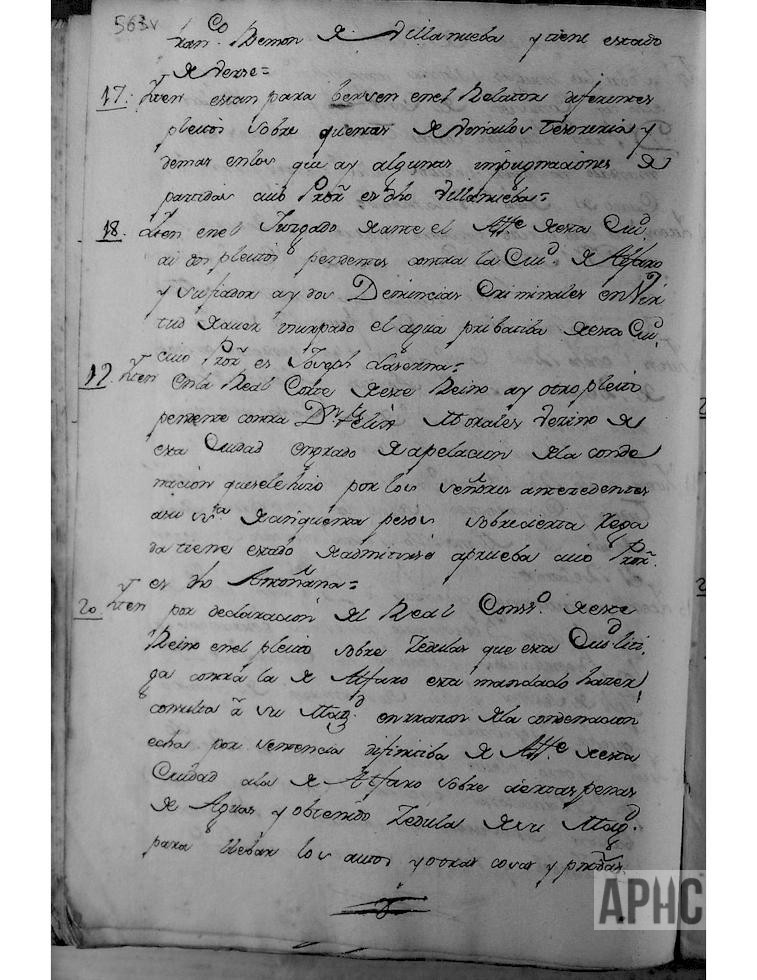 563v
ran.co Remon de Villanueba y tiene estado
de verse=
17. Yten estan para berse en el Relator diferentes
pleitos sobre quentas de vinculos tesoreria y
demas en los que ay algunas impugnaciones de
partidas cuio Pror es dho Villanueba=
18. Yten en el Juzgado de ante el Alle de esta Ciud.
ai dos pleitos pendentes contra la Ciud de Alfaro
y su fiador ay dos Denuncias Criminales en Vir
tud de auer usurpado el agua pribatiba de esta Ciud.
cuio Pror es Joseph Laserna=
19. Yten en la Real Corte de este Reino ay otro pleito
pendente contra Dn Felix Morales vezino de
esta Ciudad en grado de apelacion de la conde
nacion que se le hizo por los señores antezedentes
a su sa. de cinquenta pesos sobre cierta
da tiene estado de admitirse a prueba cuio Pror.
es dho Antoñana=
20. Yten por declaracion del Real Conso. de este
Reino en el pleito sobre Zedulas que esta Ciud liti
ga contra la de Alfaro esta mandado hazer
consulta a su Magd. en rrazon de la condenacion
echa por sentencia difinitiba de Alle de esta
Ciudad a la de Alfaro sobre ciertas penas
de Aguas y obtenido Zedula de su Magd.
para llebar los autos y otras cosas y
APHC